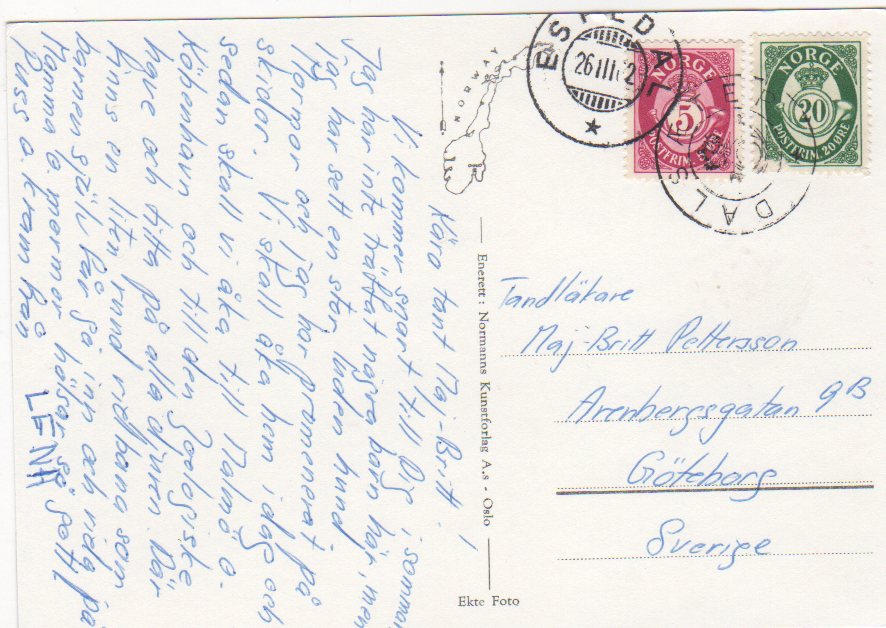 Kära tant Maj-Britt!
Vi kommer snart till Dig i sommar
Jag har inte träffat några barn här, men
jag har sett en stor luden hund.
Mormor och jag har promenerat på
skidor. Vi skall åka hem idag och
sedan skall vi åka till Malmö o.
Köbenhavn och till den Zoologiske
have och titta på alla djuren. Där
finns en liten rund ridbana som
barnen själv får gå inn och rida på
Mamma o. mormor hälsar så gott!
Puss o. kram från
LENA
NORWAY
Enerett: Normanns Kunstforlag A.s - Oslo
Ekte Foto
ESPEDAL
26 III
NORGE
5
POSTFRIM.
NORGE
20
POSTFRIM. 20 ØRE
Tandläkare
Maj-Britt Pettersson
Arenbergsgatan 9B
Göteborg
Sverige